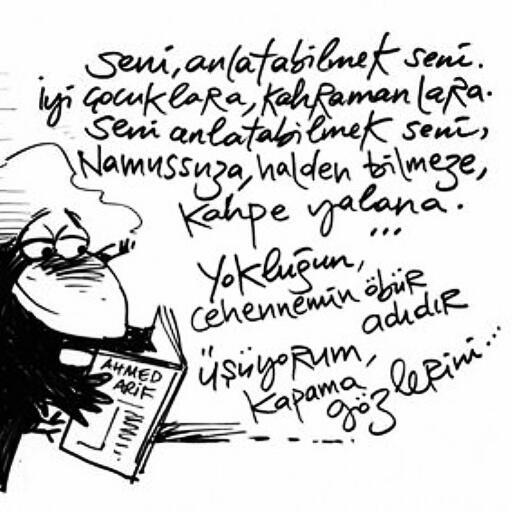 Seni, anlatabilmek seni.
iyi çocuklara, kahramanlara.
Seni anlatabilmek seni,
Namussuza, halden bilmeze,
kahpe yalana.
...
Yokluğun,
cehennemin öbür
adıdır
üşüyorum,
kapama
gözlerini...
AHMED
ARİF